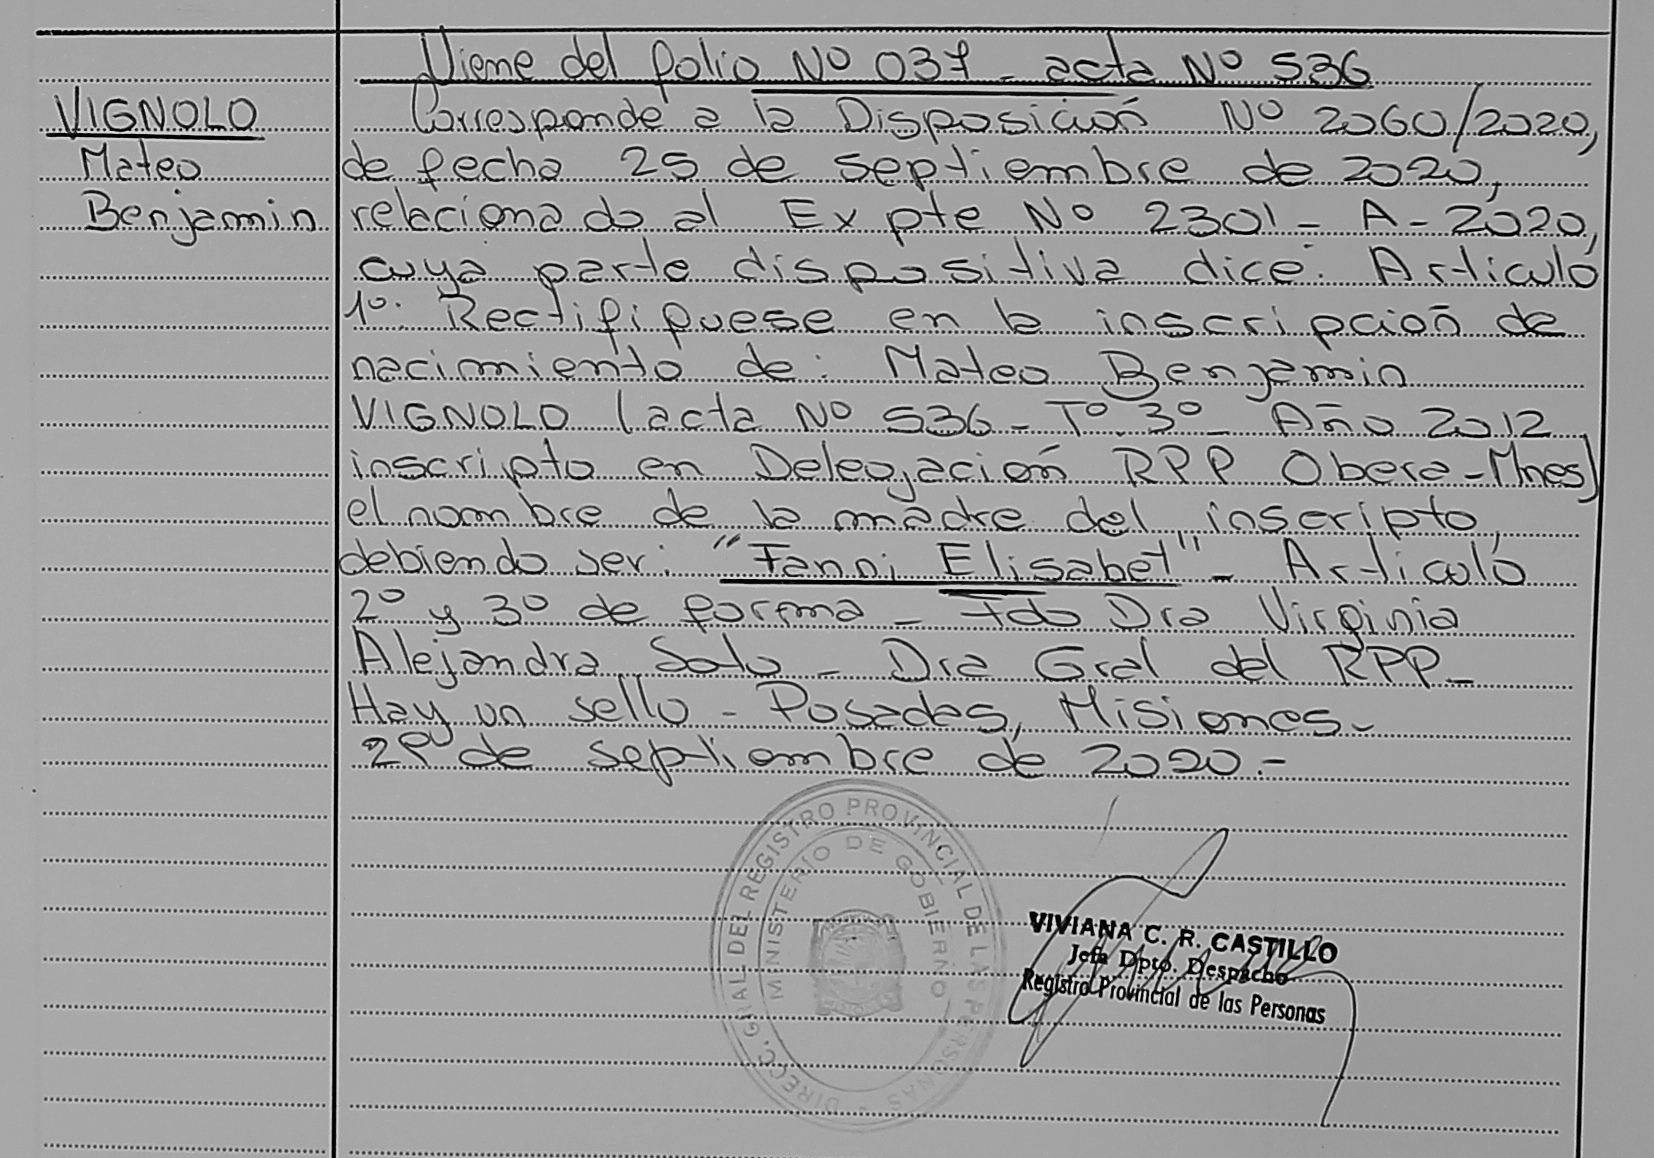 Viene del folio Nº 037 - acta Nº 536
VIGNOLO
Mateo
Benjamin
Corresponde a la Disposición Nº 2060/2020,
de fecha 25 de septiembre de 2020,
relacionado al Expte Nº 2301 - A - 2020,
cuya parte dispositiva dice: Articulo
1º: Rectifiquese en la inscripción de
nacimiento de: Mateo Benjamin
VIGNOLO (acta Nº 536 - Tº 3º - Año 2012
inscripto en Delegación RPP Obera - Mnes)
el nombre de la madre del inscripto,
debiendo ser: "Fanni Elisabet" - Articulo
2º y 3º de forma - Fdo Dra Virginia
Alejandra Soto - Dra Gral del RPP -
Hay un sello - Posadas, Misiones -
de septiembre de 2020.-
DIRECC. GRAL DEL REGISTRO PROVINCIAL DE LAS PERSONAS
MINISTERIO DE GOBIERNO
VIVIANA C. R. CASTILLO
Jefa Dpto. Despacho
Registro Provincial de las Personas